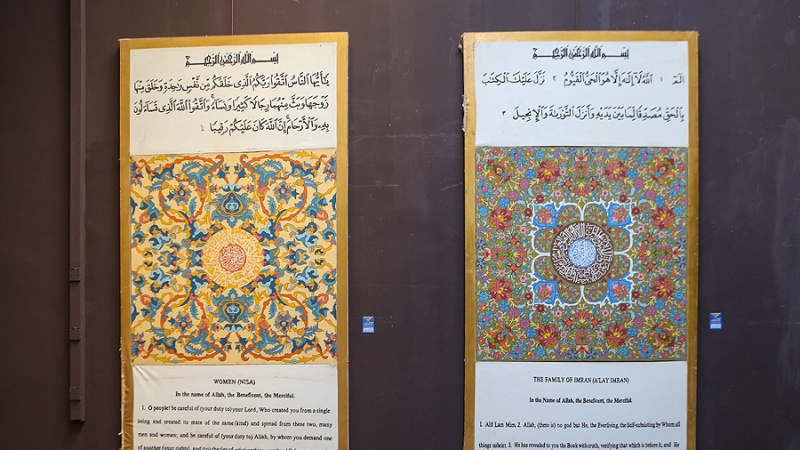 بِسْمِ اللَّهِ الرَّحْمَٰنِ الرَّحِيمِ
يَٰٓأَيُّهَا النَّاسُ اتَّقُوا رَبَّكُمُ الَّذِى خَلَقَكُم مِّن نَّفْسٍ وَٰحِدَةٍ وَخَلَقَ مِنْهَا
زَوْجَهَا وَبَثَّ مِنْهُمَا رِجَالًا كَثِيرًا وَنِسَآءً وَاتَّقُوا اللَّهَ الَّذِى تَسَآءَلُونَ
بِهِۦ وَالْأَرْحَامَ إِنَّ اللَّهَ كَانَ عَلَيْكُمْ رَقِيبًا ١
WOMEN (NISA)
In the name of Allah, the Beneficent, the Merciful.
1. O people! be careful of (your duty to) your Lord, Who created you from a single
being and created its mate of the same (kind) and spread from these two, many
men and women; and be careful of (your duty to) Allah, by whom you demand one
of another (your rights), and
بِسْمِ اللَّهِ الرَّحْمَٰنِ الرَّحِيمِ
الٓمٓ ١ اللَّهُ لَآ إِلَٰهَ إِلَّا هُوَ الْحَىُّ الْقَيُّومُ ٢ نَزَّلَ عَلَيْكَ الْكِتَٰبَ
بِالْحَقِّ مُصَدِّقًا لِّمَا بَيْنَ يَدَيْهِ وَأَنزَلَ التَّوْرَىٰةَ وَالْإِنجِيلَ ٣
THE FAMILY OF IMRAN (A'LAY IMRAN)
In the Name of Allah, the Beneficent, the Merciful.
1. Alif Lam Mim. 2. Allah, (there is) no god but He, the Everliving, the Self-subsisting by Whom all
things subsist. 3. He has revealed to you the Book with truth, verifying that which is before it, and He